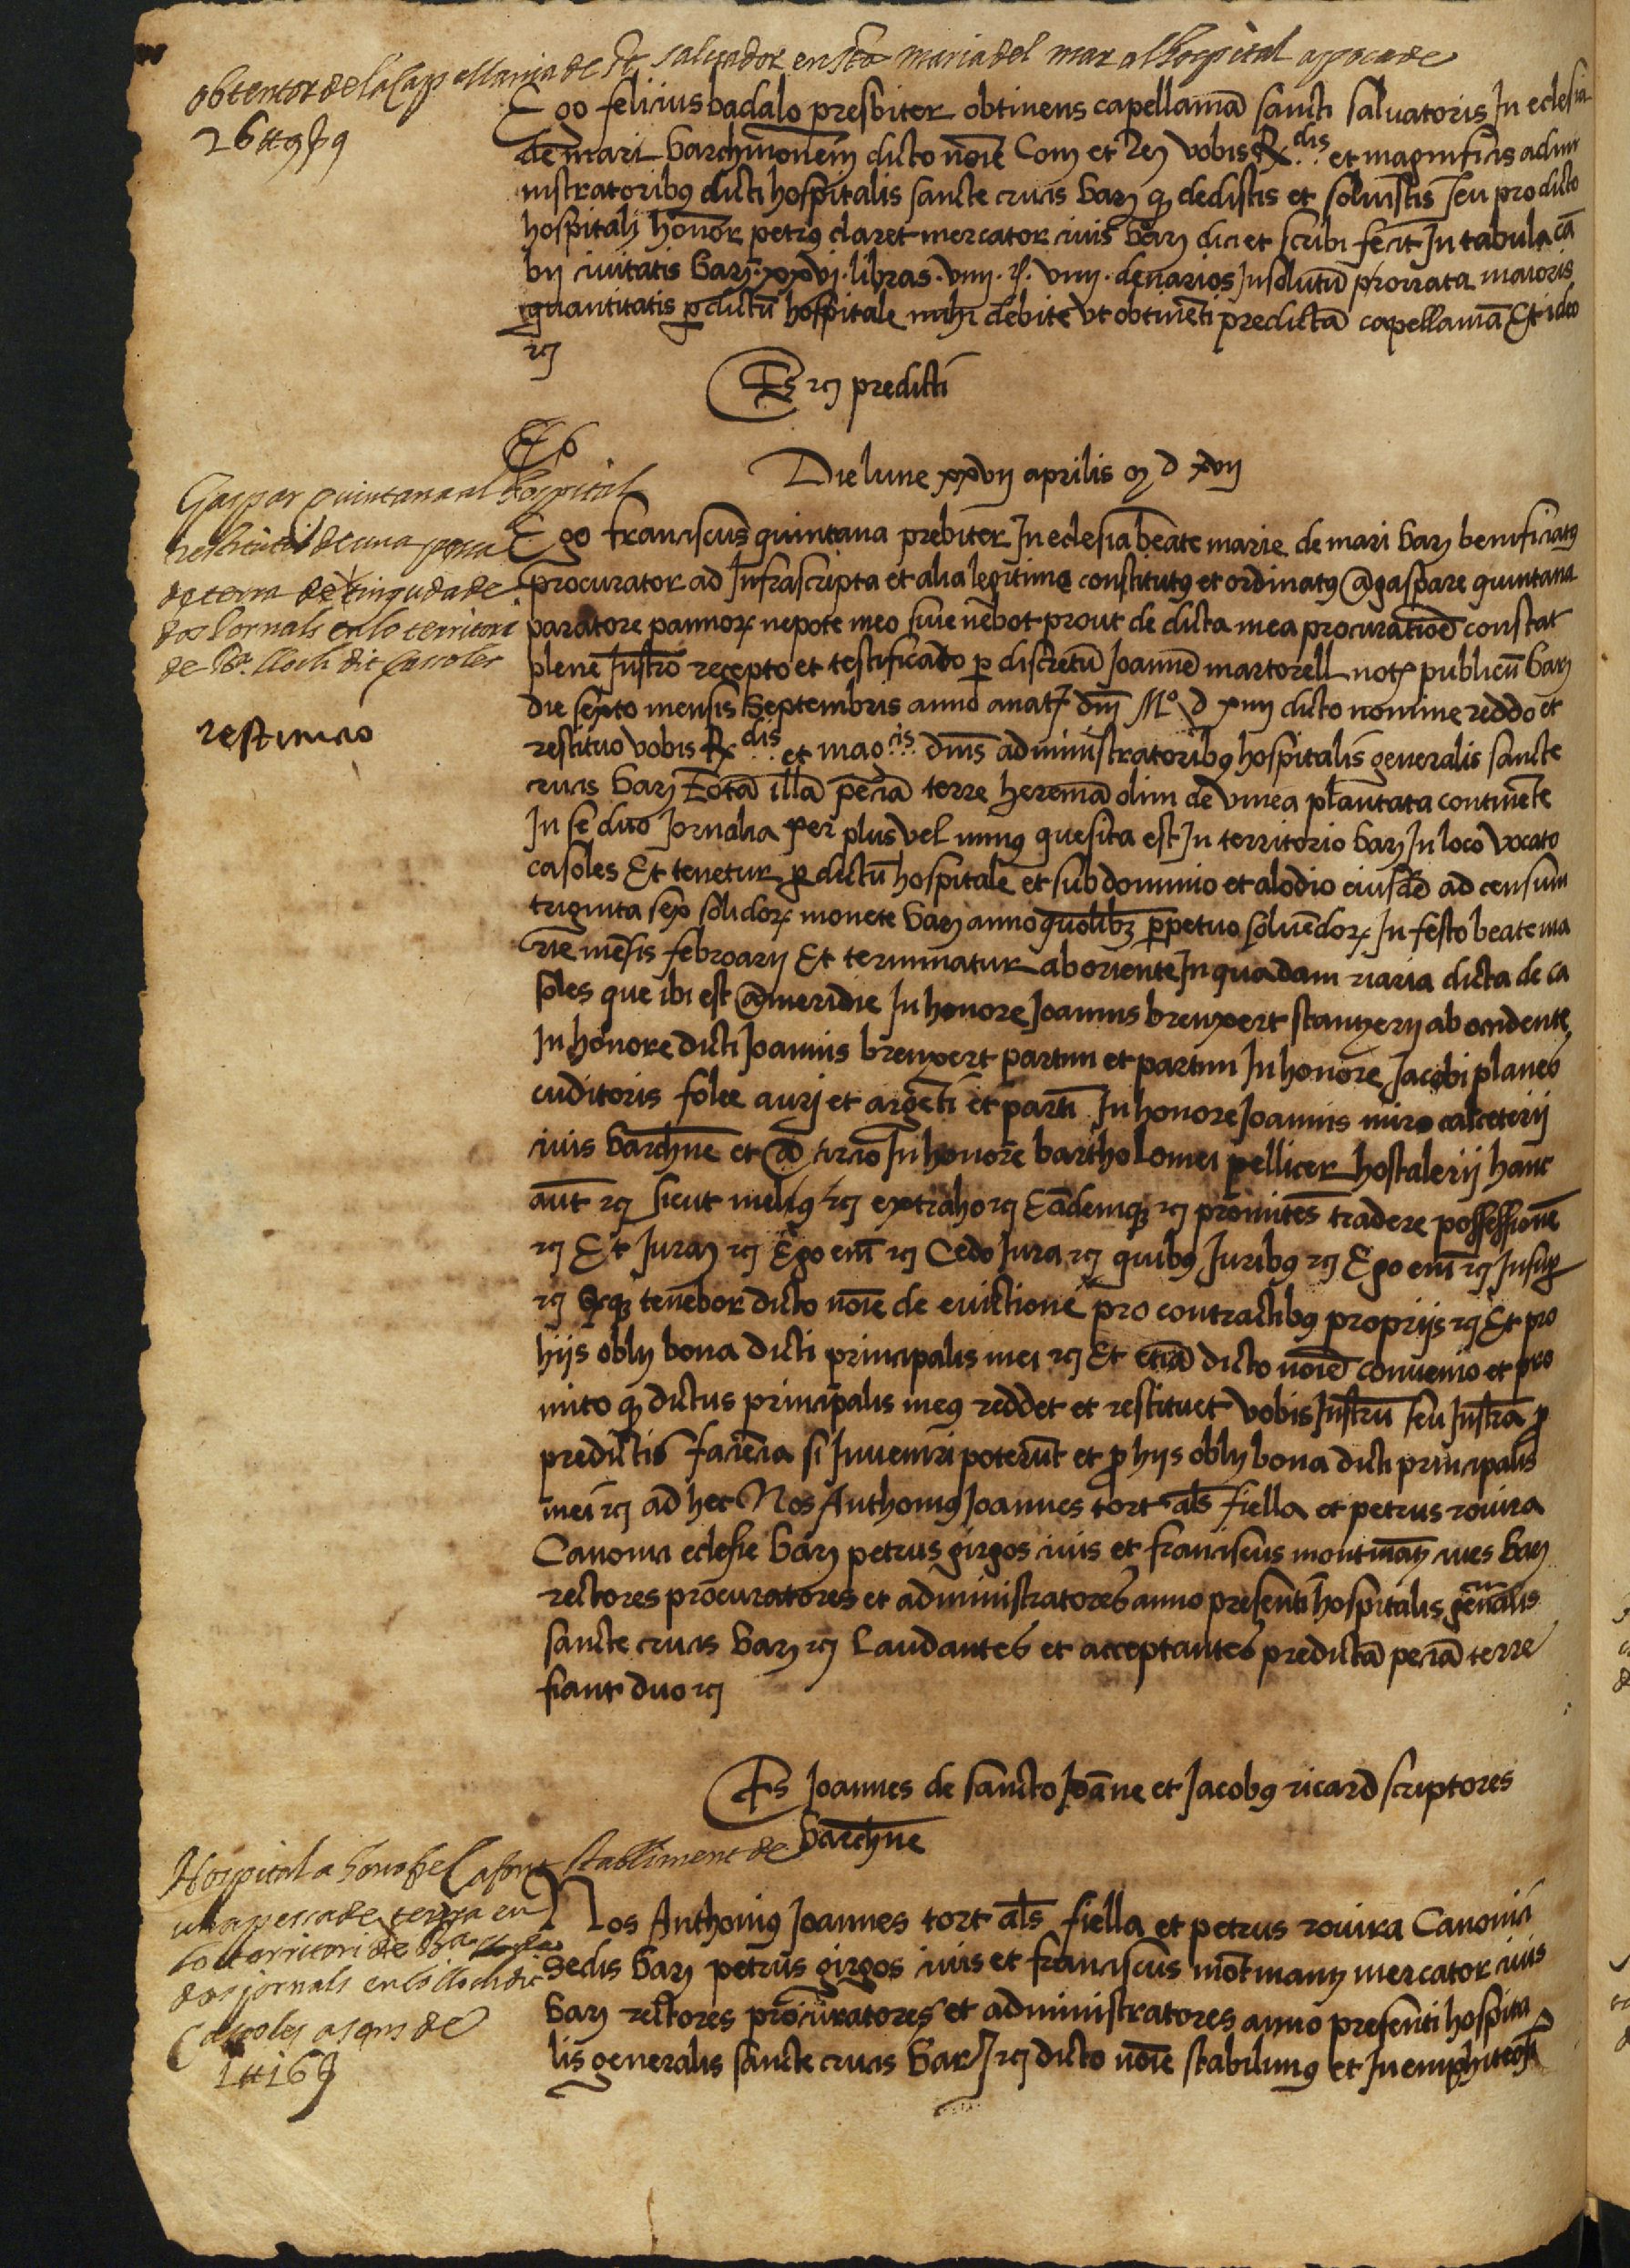 obtentor de la Capellania de St. salvador en Sta maria del mar al hospital apoca de
26 ℔ 9 ß 9
Ego felicius badalo presbiter obtinens capellaniā sancti saluatoris In eclesia
de mari barchinonem dicto nōie Com et Reg vobis Rx.dis et magnificis admi
nistratoribꝯ dicti hospitalis sancte crucis barꝫ qꝫ dedistis et soluistis seu pro dicto
hospitali honor petrꝯ claret mercator ciuis barꝫ dici et scribi fecit In tabula cā
bij ciuitatis barꝫ. xxvj. libras. viiij. ß. viiij. denarios In solutū prorrata maioris
quantitatis ꝑ dictū hospitale mihi debite vt obtinēti predictā capellaniā Et ideo
rꝫ
Ts rꝫ predicti
Die lune xxvij aprilis ꝫ d xvij
Gaspar quintana al hospital
restitucio de una pessa
de terra de tinguda de
dos Jornals en lo territori
de Ba. lloch dit Casoles
restitucio
Ego franciscus quintana prebiter In eclesia beate marie de mari barꝫ benificiatꝯ
procurator ad Infrascripta et alia legitime constitutꝯ et ordinatꝯ a gaspare quintana
paratore pannorꝝ nepote meo siue nebot prout de dicta mea procuratiōe constat
plene Instrō recepto et testificado ꝑ discretū Joannē martorell notꝝ publicū barꝫ
die sexto mensis Septembris anno anatꝫ dnī Mº d xiiij dicto nomine reddo et
restituo vobis Rx.dis et mag.cis dnis administratoribꝯ hospitalis generalis sancte
crucis barꝫ Totā illā peciā terre heremā olim de vinea plantata continēte
In se duo Jornalia per plus vel minꝯ que sita est In territorio barꝫ In loco vocato
casoles Et tenetur ꝑ dictū hospitale et sub dominio et alodio eiusdē ad censum
triginta sex solidorꝝ monete barꝫ anno quolibꝫ ꝑpetuo soluēdorꝝ In festo beate ma
rie mēsis febroarij Et terminatur ab oriente In quadam riaria dicta de ca
soles que ibi est a meridie In honore Joannis brenxert stanyerij ab occidente
In honore dicti Joannis brenxert partim et partim In honore Jacobi planes
cuditoris folee aurj et argēti et parti In honore Joannis miro calceterij
ciuis barchne et a circio In honore bartholomei pellicer hostalerij hanc
aut rꝫ sicut melius rꝫ extraho rꝫ Eādemqꝫ rꝫ promitēs tradere possessionē
rꝫ Et Juraꝫ rꝫ Ego enī rꝫ Cedo Jura rꝫ quibꝯ Juribꝯ rꝫ Ego enī rꝫ Insuꝑ
rꝫ tenebor dicto nōie de euictione pro contractibꝯ proprijs rꝫ Et pro
hijs oblꝫ bona dicti principalis mei rꝫ Et etiā dicto nōie conuenio et pro
mito qꝫ dictus principalis meꝯ reddet et restituet vobis Instrū seu Instrā ꝓ
predictis faciēcia si Inueniri poterūt et ꝓ hijs oblꝫ bona dicti principalis
mei rꝫ ad hec Nos Anthoniꝯ Joannes tort als fiella et petrus rouira
Canonici eclesie barꝫ petrus girgos ciuis et franciscus montmanꝫ ciues barꝫ
rectores procuratores et administratores anno presenti hospitalis generalis
sancte crucis barꝫ rꝫ Laudantes et acceptantes predictā peciā terre
fiant duo rꝫ
Ts Joannes de sancto Joāne et Jacobꝯ ricard scriptores
barchne
Hospital a Lafont stabliment de
una pessa de terra en
lo territori de Bar
dos jornals en lo lloch dit
Casoles a sens de
1 ℔ 16 ß
Nos Anthoniꝯ Joannes tort als fiella et petrus rouira Canonici
Sedis barꝫ petrus girgos ciuis et franciscus mōtmany mercator ciuis
barꝫ rectores procuratores et administratores anno presenti hospita
lis generalis sancte crucis barꝫ rꝫ dicto nōie stabilimꝯ et In emphiteosī